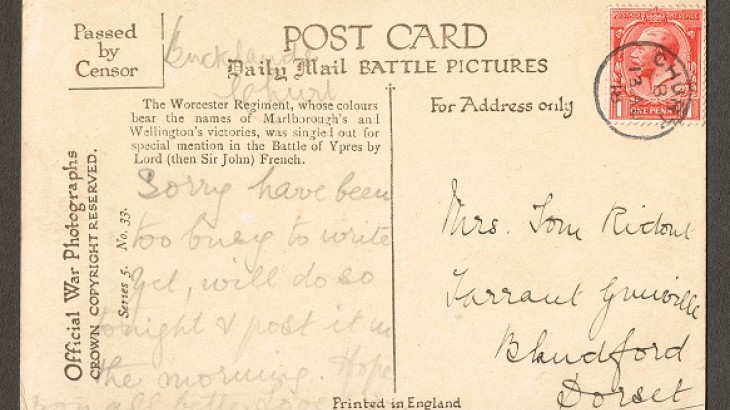 Passed
by
Censor
POST CARD
Daily Mail BATTLE PICTURES
Bucklands
Churt
The Worcester Regiment, whose colours
bear the names of Marlborough's and
Wellington's victories, was singled out for
special mention in the Battle of Ypres by
Lord (then Sir John) French.
Official War Photographs
CROWN COPYRIGHT RESERVED.
Series 5. No. 33.
Sorry have been
too busy to write
yet, will do so
tonight & post it in
the morning. Hope
you all better
For Address only
POSTAGE REVENUE
ONE PENNY
CHURT
Mrs. Tom Ridout
Tarrant Gunville
Blandford
Dorset
Printed in England